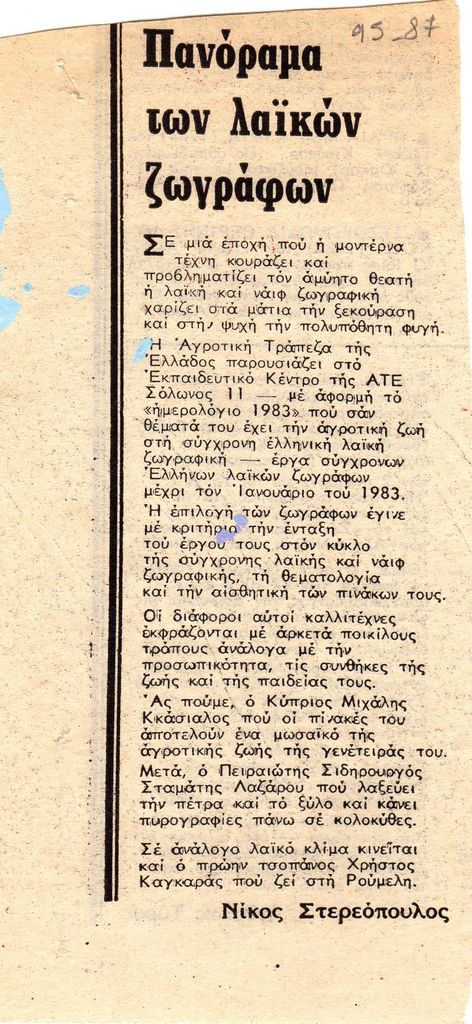 95_87
Πανόραμα
των λαϊκών
ζωγράφων
ΣΕ μιά ἐποχή πού ἡ μοντέρνα
τέχνη κουράζει καί
προβληματίζει τόν ἀμύητο θεατή
ἡ λαϊκή καί νάιφ ζωγραφική
χαρίζει στά μάτια τήν ξεκούραση
καί στήν ψυχή τήν πολυπόθητη φυγή.
Ἡ Ἀγροτική Τράπεζα τῆς
Ἑλλάδος παρουσιάζει στό
Ἐκπαιδευτικό Κέντρο τῆς ΑΤΕ
Σόλωνος 11 — μέ ἀφορμή τό
«ἡμερολόγιο 1983» πού σάν
θέματά του ἔχει τήν ἀγροτική ζωή
στή σύγχρονη ἑλληνική λαϊκή
ζωγραφική — ἔργα σύγχρονων
Ἑλλήνων λαϊκῶν ζωγράφων
μέχρι τόν Ἰανουάριο τοῦ 1983.
Ἡ ἐπιλογή τῶν ζωγράφων ἔγινε
μέ κριτήρια τήν ἔνταξη
τοῦ ἔργου τους στόν κύκλο
τῆς σύγχρονης λαϊκῆς καί νάιφ
ζωγραφικῆς, τή θεματολογία
καί τήν αἰσθητική τῶν πινάκων τους.
Οἱ διάφοροι αὐτοί καλλιτέχνες
ἐκφράζονται μέ ἀρκετά ποικίλους
τρόπους ἀνάλογα μέ τήν
προσωπικότητα, τίς συνθῆκες τῆς
ζωῆς καί τῆς παιδείας τους.
Ἄς ποῦμε, ὁ Κύπριος Μιχάλης
Κκάσιαλος πού οἱ πίνακές του
ἀποτελοῦν ἕνα μωσαϊκό τῆς
ἀγροτικῆς ζωῆς τῆς γενέτειράς του.
Μετά, ὁ Πειραιώτης Σιδηρουργός
Σταμάτης Λαζάρου πού λαξεύει
τήν πέτρα καί τό ξύλο καί κάνει
πυρογραφίες πάνω σέ κολοκύθες.
Σέ ἀνάλογο λαϊκό κλίμα κινεῖται
καί ὁ πρώην τσοπάνος Χρῆστος
Καγκαράς πού ζεῖ στή Ρούμελη.
Νίκος Στερεόπουλος